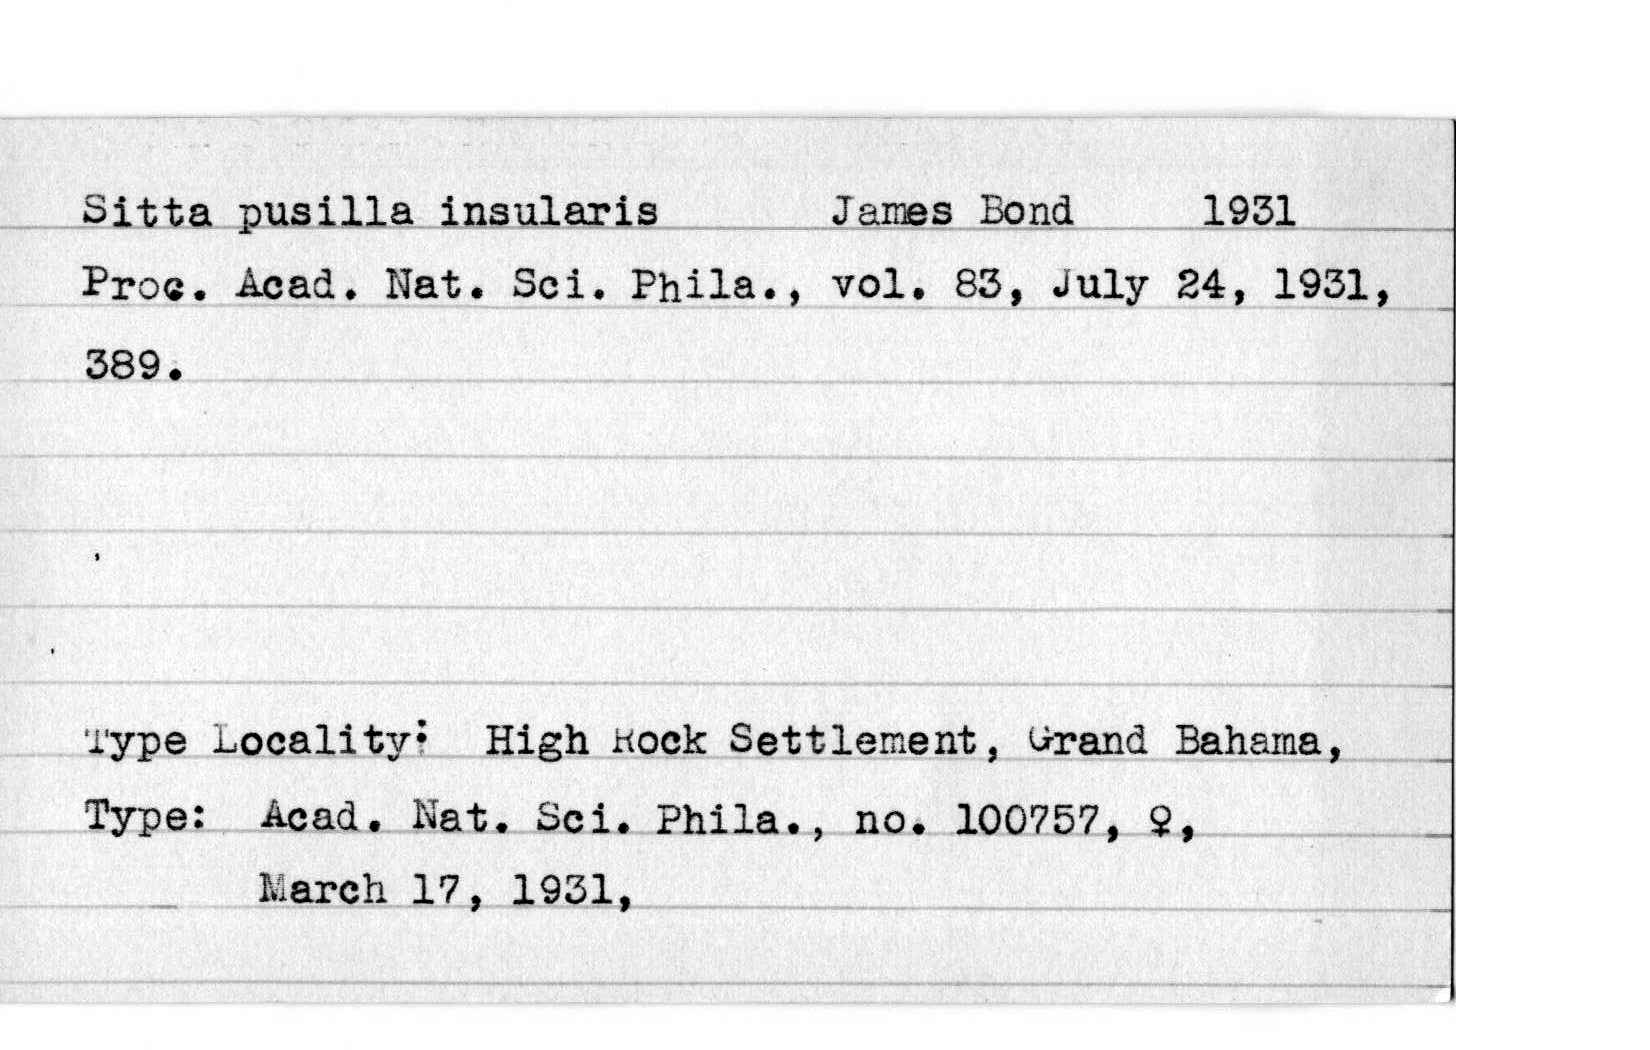 Sitta pusilla insularis James Bond 1931
Proc. Acad. Nat. Sci. Phila., vol. 83, July 24, 1931,
389.
Type Locality: High Rock Settlement, Grand Bahama,
Type: Acad. Nat. Sci. Phila., no. 100757, ♀,
March 17, 1931,